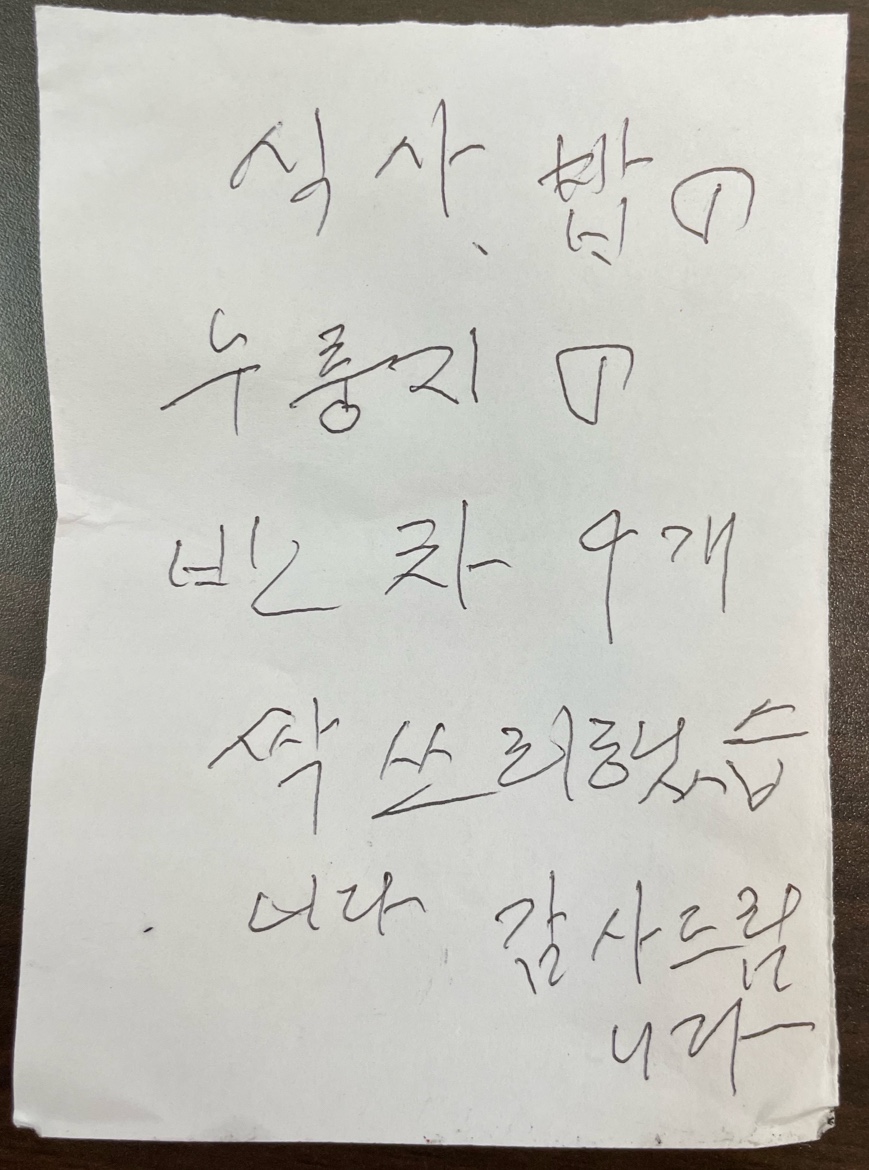 식사, 밥 ①
누룽지 ①
빈 차 9개
싹 쓰리했습
니다 감사드림
니다